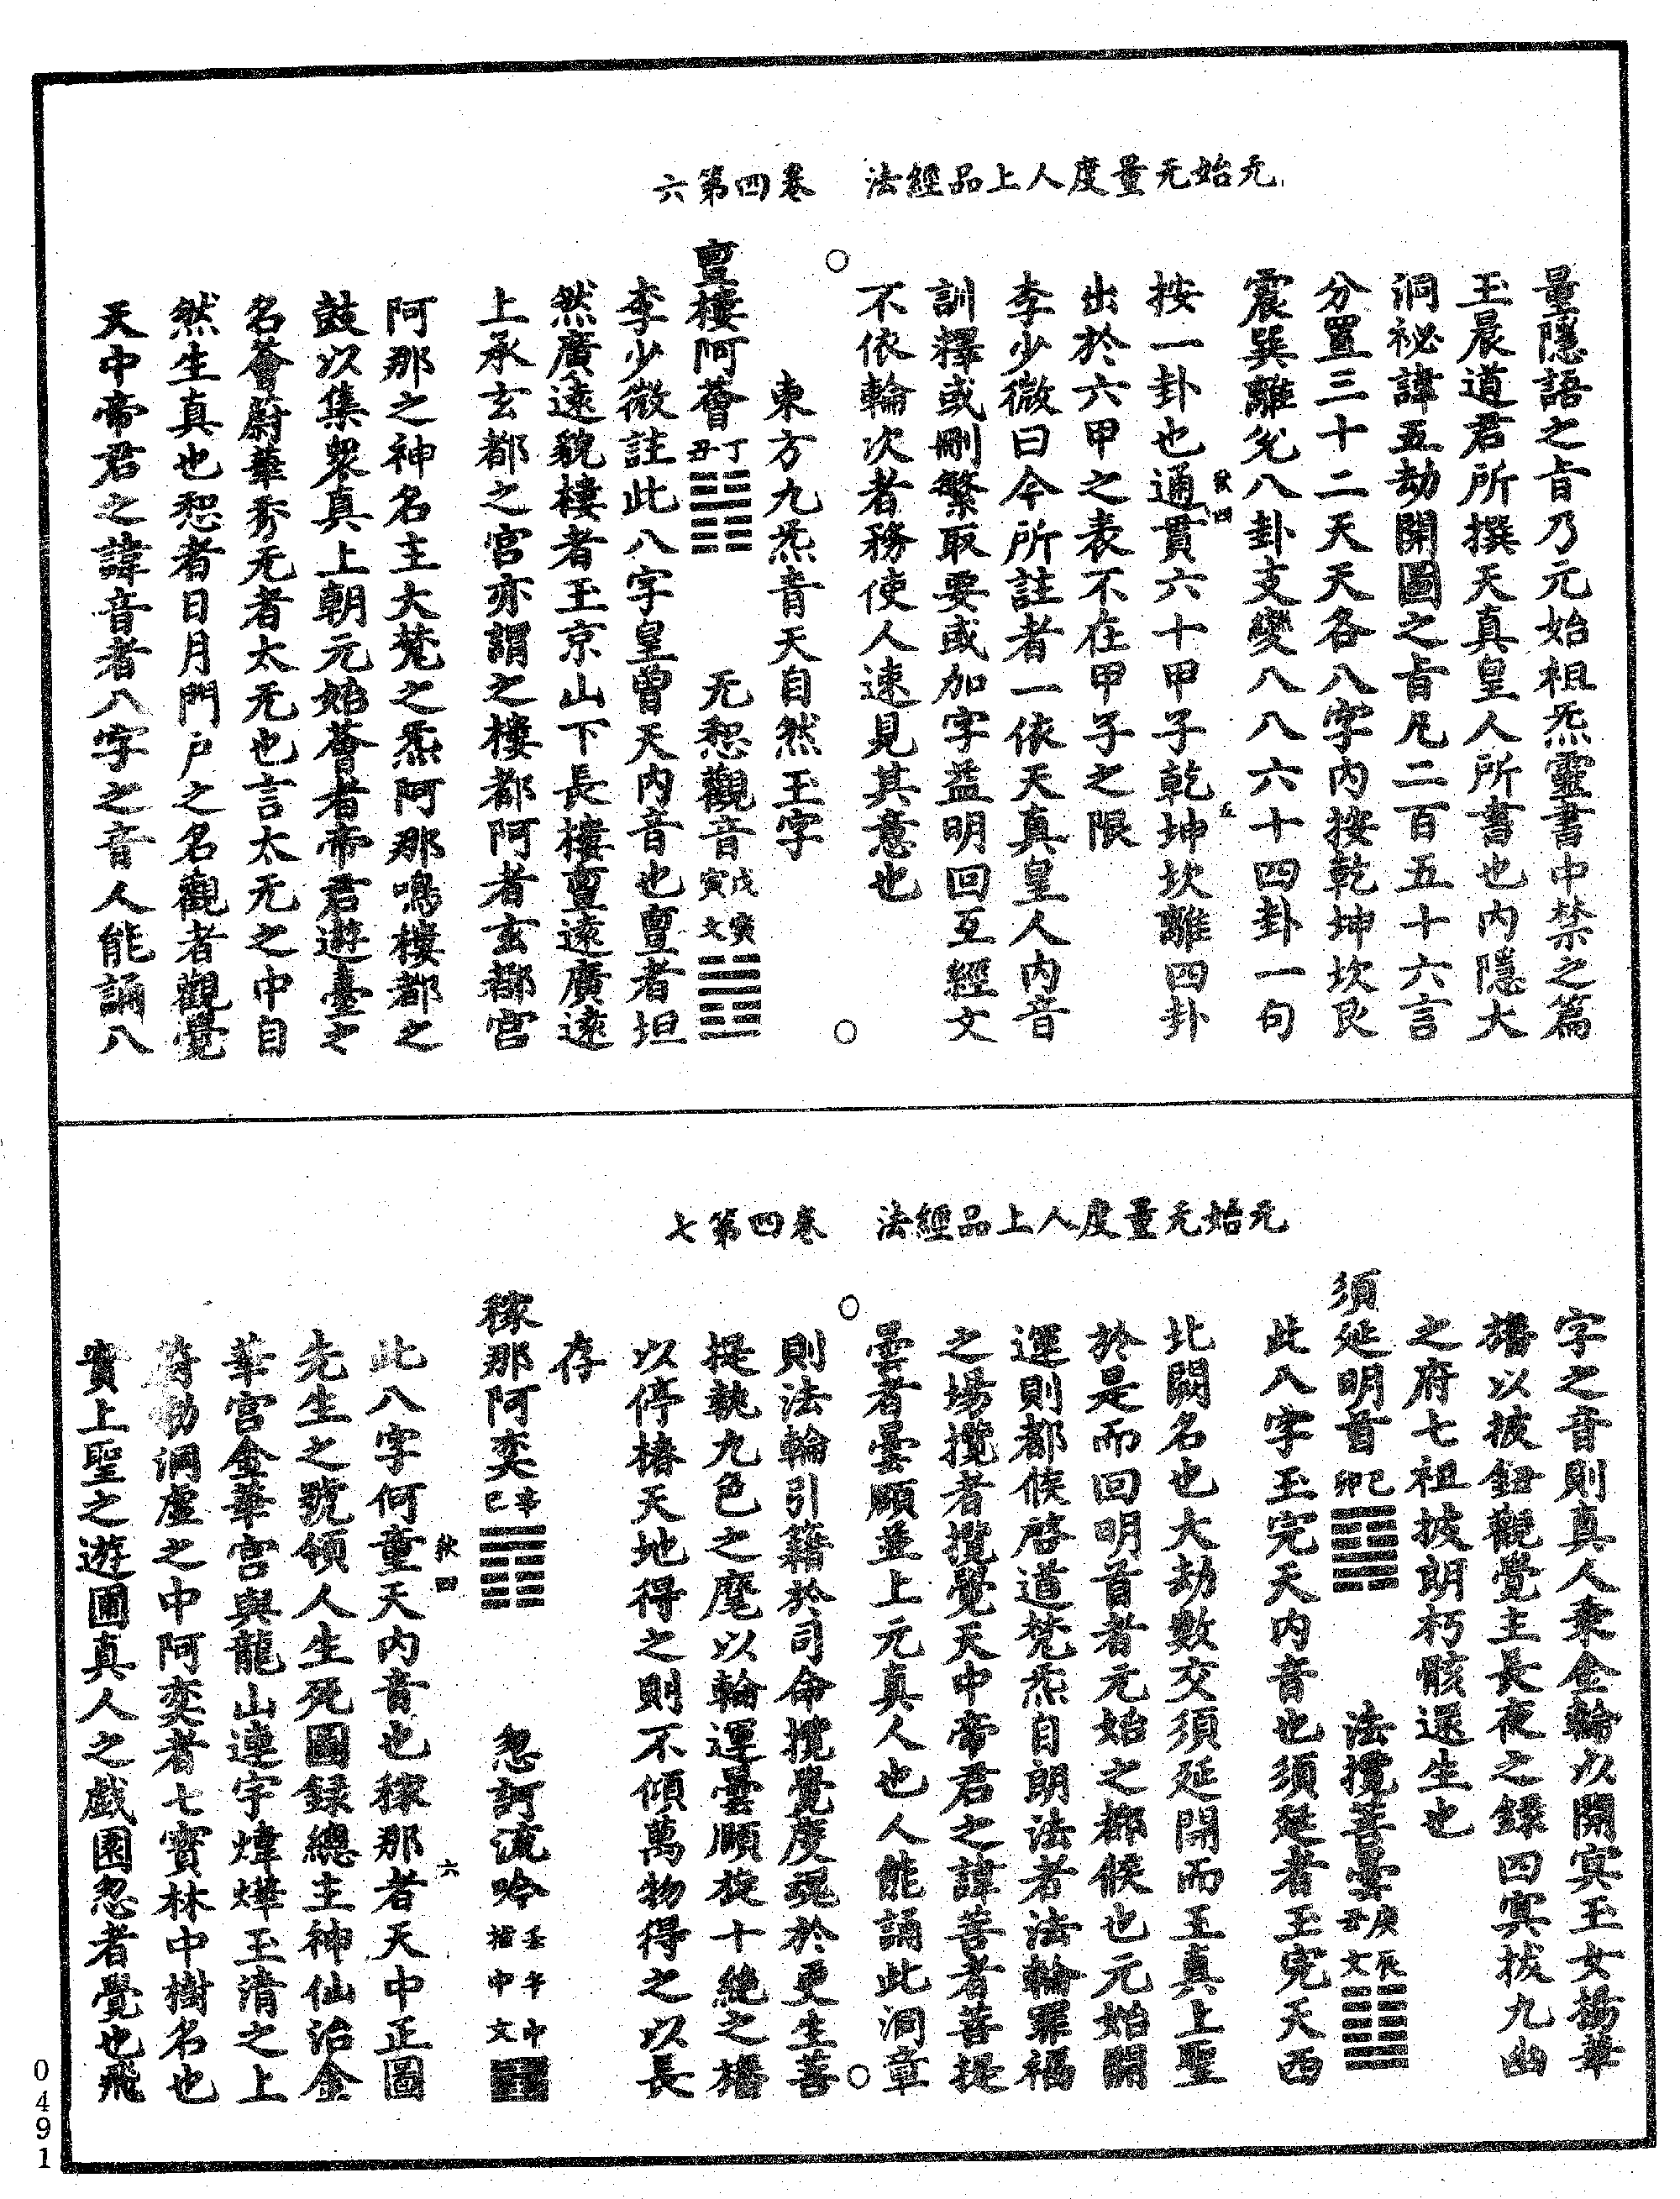 元始无量度人上品經法　卷四第六
量隱語之旨乃元始祖炁靈書中禁之篇
玉晨道君所撰天真皇人所書也内隱大
洞祕諱五劫開圖之旨凡二百五十六言
分置三十二天天各八字内按乾坤坎艮
震巽離兊八卦支變八八六十四卦一句
按一卦也通貫六十甲子乾坤坎離四卦
出於六甲之表不在甲子之限
李少微曰今所註者一依天真皇人内音
訓擇或刪繁取要或加字益明回互經文
不依輪次者務使人速見其意也
東方九炁音天自然玉字
亶樓阿薈丁丑　无惒觀音戊寅寅文
李少微註此八字皇曾天内音也亶者坦
然廣遠貌樓者玉京山下長樓亶遠廣遠
上承玄都之宫亦謂之樓都阿者玄都宫
阿那之神名主大梵之炁阿那鳴樓都之
鼓以集衆真上朝元始薈者帝君遊臺之
名薈蔚華秀无者太无也言太无之中自
然生真也惒者日月門户之名觀者觀覺
天中帝君之諱音者八字之音人能誦八
元始无量度人上品經法　卷四第七
字之音則真人乘金輪以開寅玉女揚華
旛以披鈕觀覺主長夜之録四冥拔九幽
之府七祖披朗朽骸還生也
須延明首己卯　法攬菩曇庚辰丑文
此八字玉完天内音也須延者玉完天西
北闕名也大劫數交須延開而玉真上聖
於是而回明首者元始之都候也元始開
運則都候啓道梵炁自朗法者法輪罪福
之場攬者攬覺天中帝君之諱菩者菩提
曇者曇願並上元真人也人能誦此洞章
則法輪引籍於司命攬覺度魂於更生菩
提執九色之麾以輪運曇願旋十絶之旛
以停椿天地得之則不傾萬物得之以長
存
稼那阿奕辛巳　忽訶流吟壬午中文
此八字何童天内音也稼那者天中正圖
先生之號領人生死圖録總主神仙治金
華宫金華宫與龍山連宇煒燁玉清之上
符勑洞虚之中阿奕者七寶林中樹名也
實上聖之遊圃真人之戲園忽者覺也飛
0491